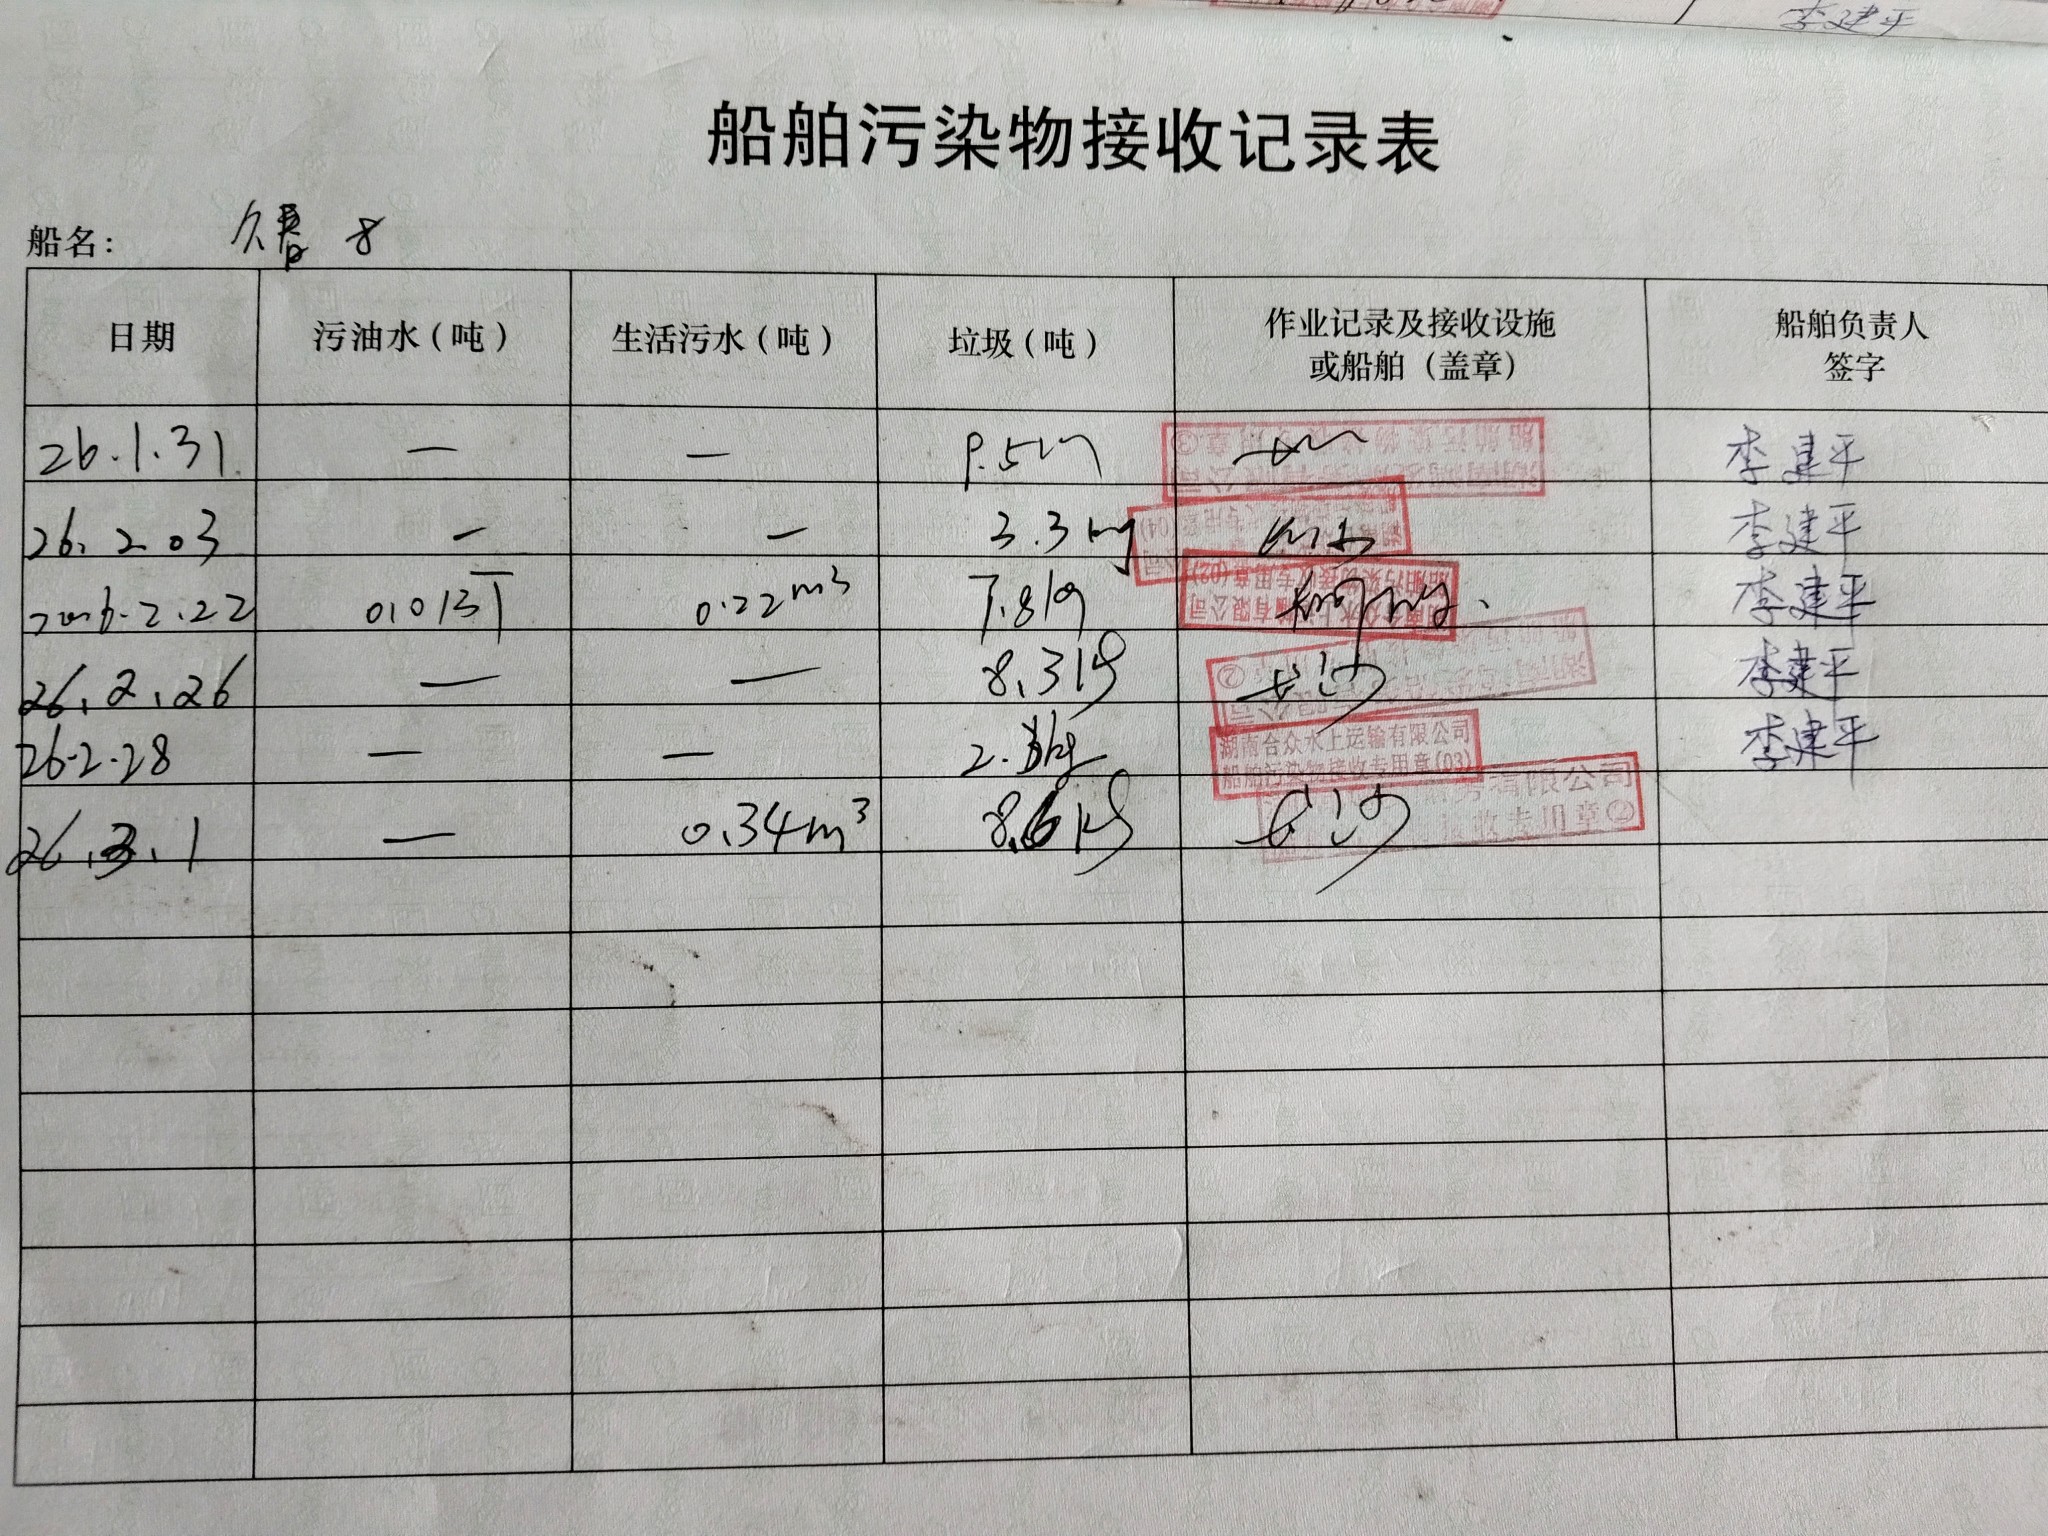 李建平
船舶污染物接收记录表
船名： 久 8
日期 污油水（吨） 生活污水（吨） 垃圾（吨） 作业记录及接收设施或船舶（盖章） 船舶负责人签字
26.1.31 — — 李建平
26.2.03 — — 3.3kg 李建平
2026.2.22 0.013T 0.22m³ 7.8kg 李建平
26.2.26 — — 8.3kg 长沙 李建平
26.2.28 — — 湖南合众水上运输有限公司 李建平
船舶污染物接收专用章(03)
26.3.1 — 0.34m³ 8.6kg 长沙